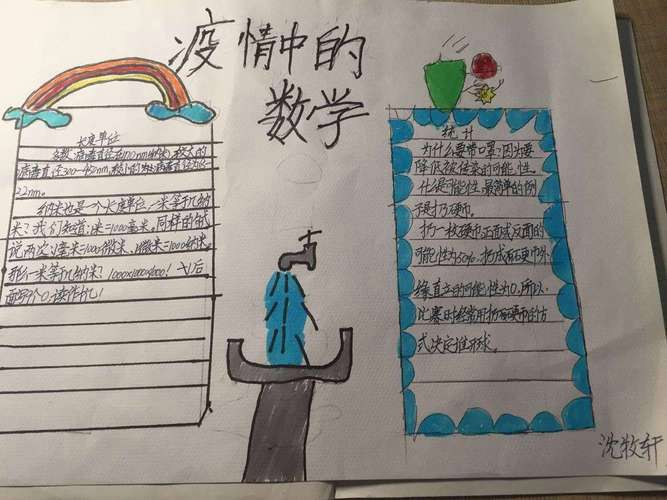 疫情中的
数学
长度单位
多数病毒直径在100nm(纳米),较大的
病毒直径300-450nm,较小的病毒直径仅
22nm。
纳米也是一个长度单位,一米等于几纳
米?我们知道:1米=1000毫米,同样的方式
说两次,1毫米=1000微米,1微米=1000纳米。
那么一米等于几纳米?1000×1000×1000!
面写个0,读作
统计
为什么要带口罩?因为要
降低被传染的可能性。
什么是可能性,最简单的例
子是扔硬币。
扔一枚硬币,正面或反面的
可能性为50%,扔成
缘直立的可能性为0,所以
比赛时经常用扔硬币的方
式决定推球。
沈牧轩